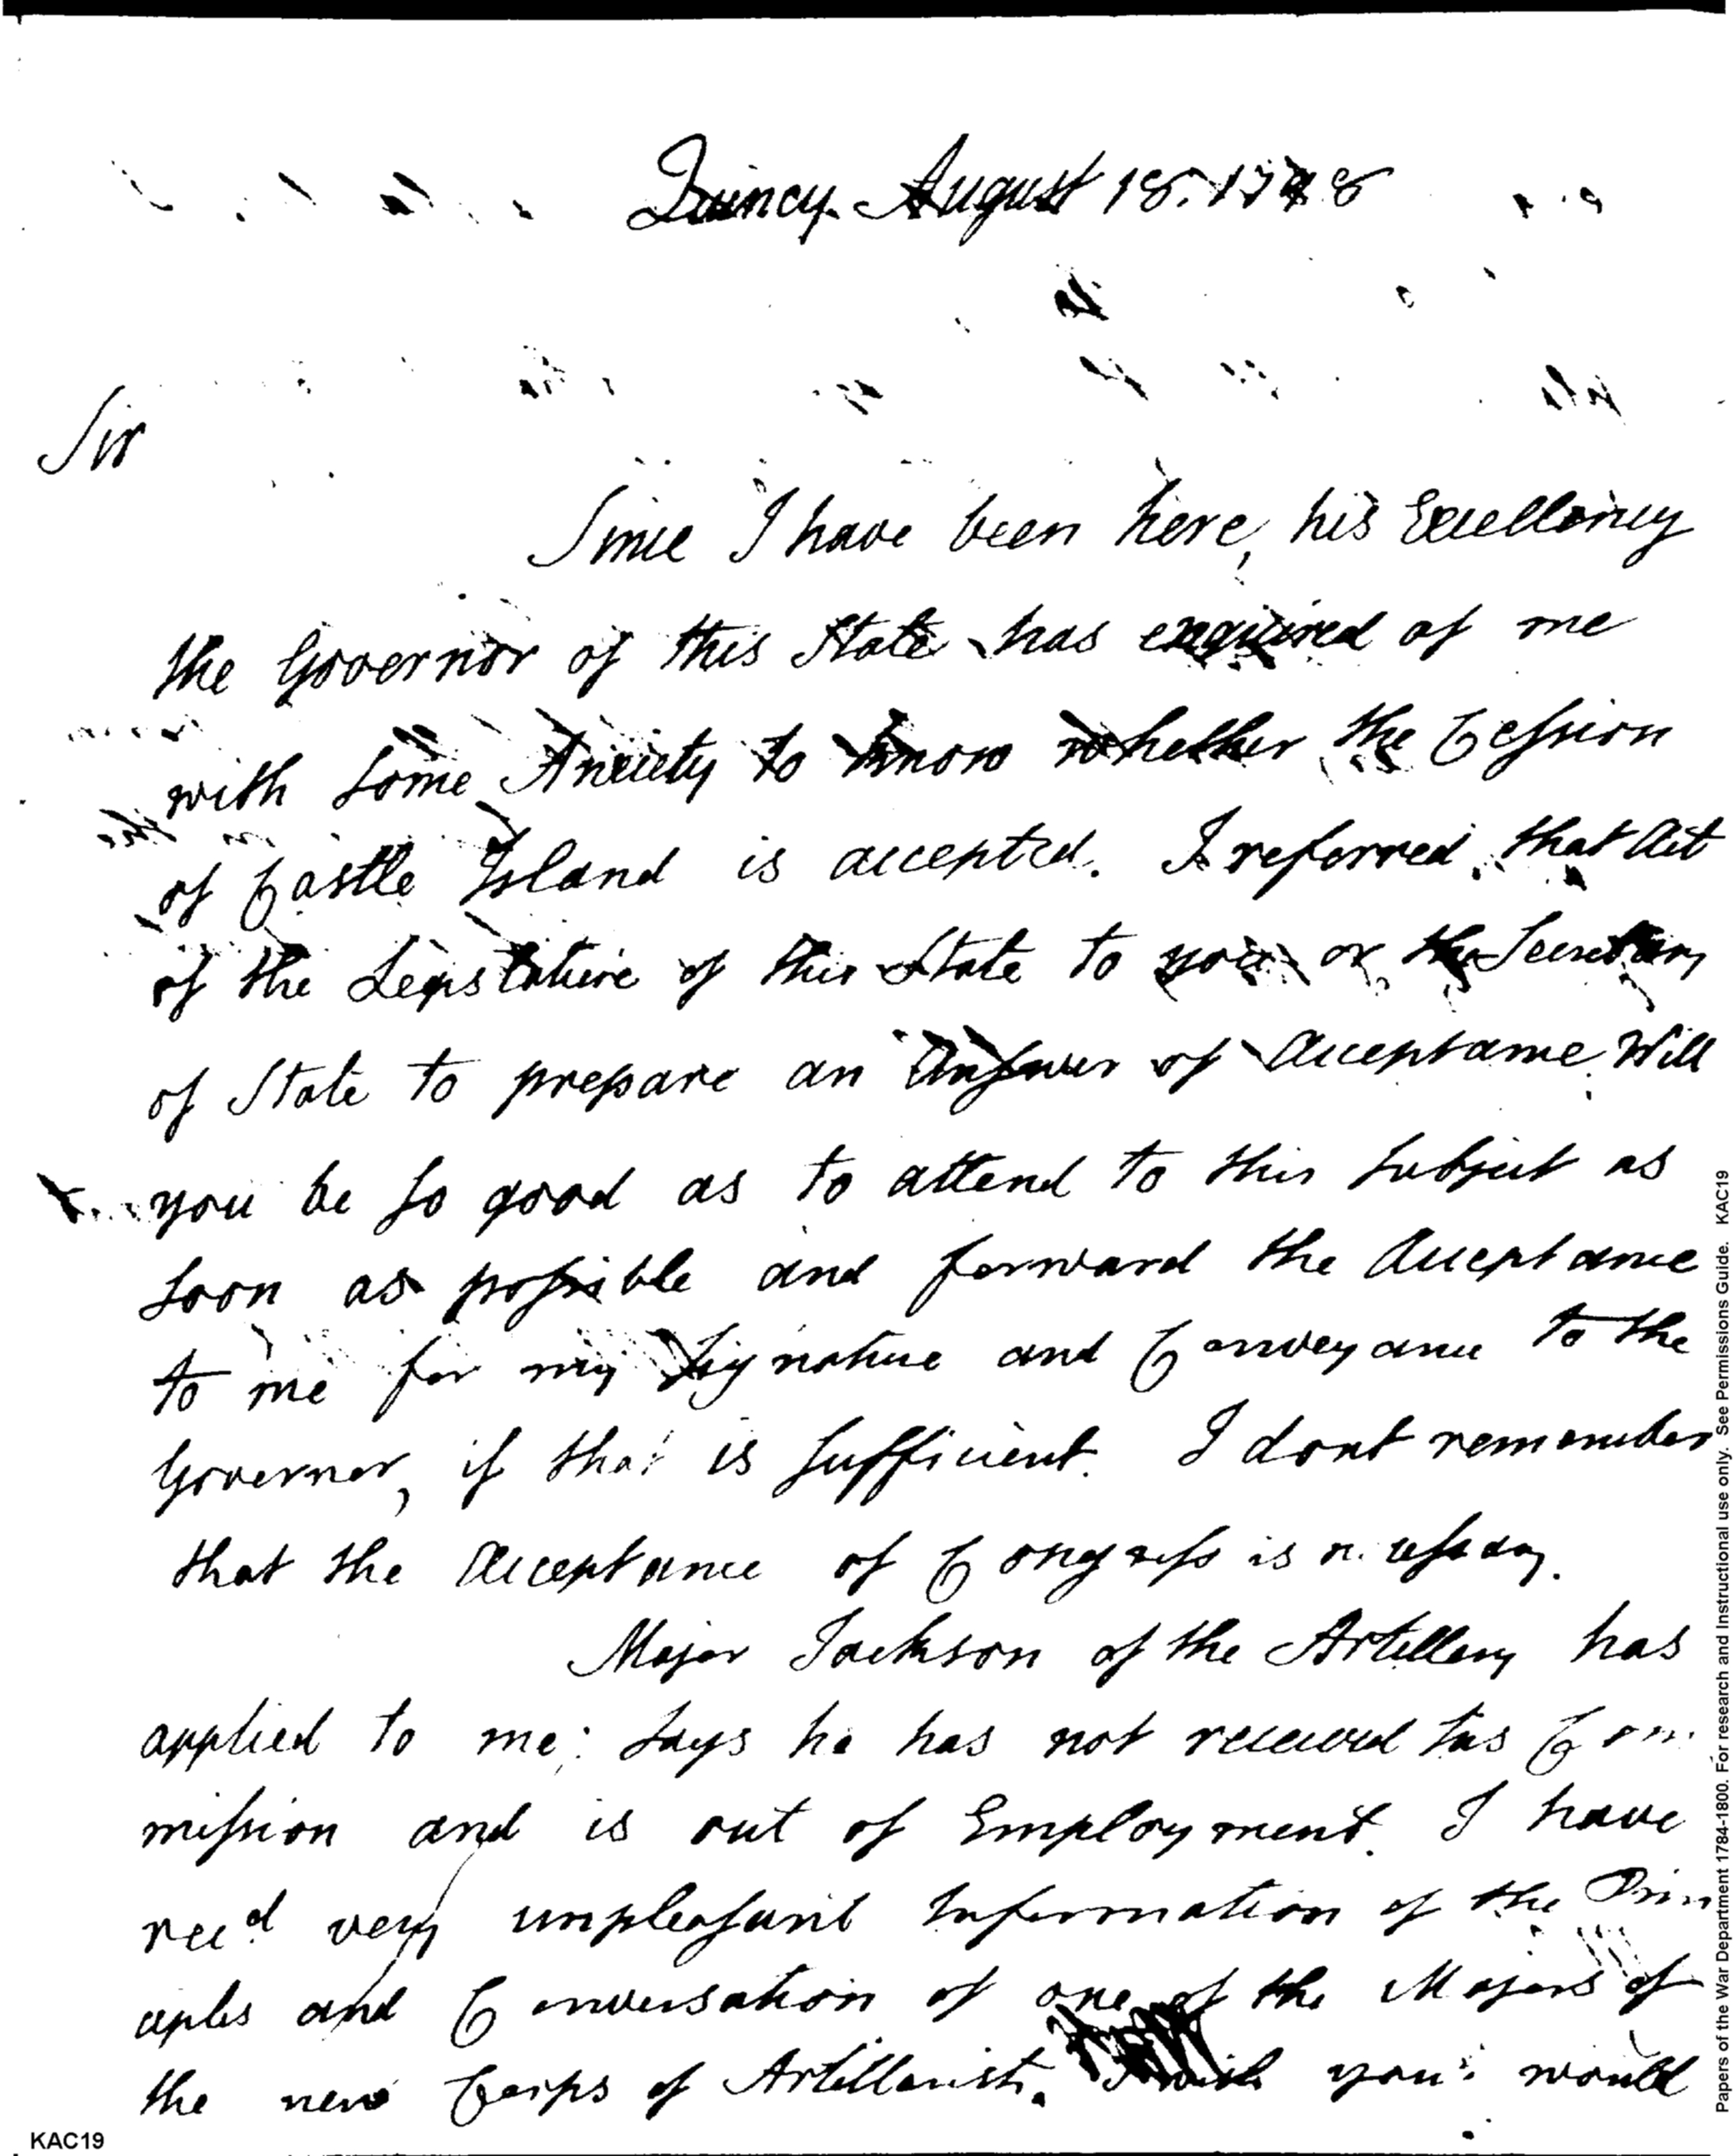 Quincy August 18. 1798
Sir
Since I have been here, his Excellency
the Governor of this State has enquired of me
with some Anxiety to know whether the Cession
of Castle Island is accepted. I referred that Act
of the Legislature of this State to you or the Secretary
of State to prepare an Answer of Acceptance. Will
you be so good as to attend to this subject as
soon as possible and forward the Acceptance
to me for my signature and Conveyance to the
Governor, if that is sufficient. I dont remember
that the Acceptance of Congress is necessary.
Major Jackson of the Artillery has
applied to me: says he has not received his Com
mission and is out of Employment. I have
recd very unpleasant Information of the Prin
ciples and Conversation of one of the Majors of
the new Corps of Artillerists. I wish you would
KAC19
Papers of the War Department 1784-1800. For research and Instructional use only. See Permissions Guide. KAC19